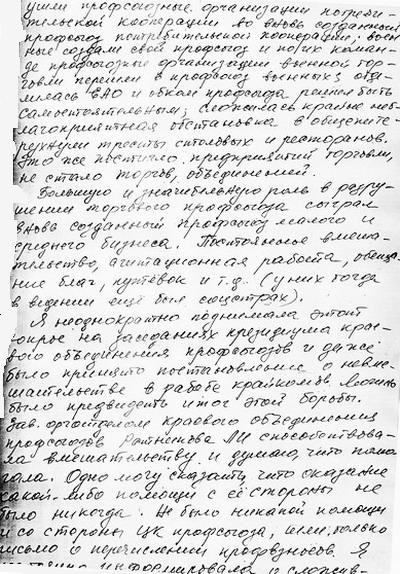 ушли профсоюзные организации потреби-
тельской кооперации во вновь созданный
профсоюз потребительской кооперации, воен
ные создали свой профсоюз и по их коман-
де профсоюзные организации военной тор-
говли перешли в профсоюз военных; отде-
лилась ЕАО и обком профсоюза решил быть
самостоятельным; сложилась крайне неб-
лагоприятная обстановка в общепите -
рухнули тресты столовых и ресторанов.
Это же постигло предприятий торговли,
не стало торгов, объединений.
Большую и значительную роль в разру-
шении торгового профсоюза сыграл
вновь созданный профсоюз малого и
среднего бизнеса. Постоянное вмеша-
тельство, агитационная работа, обеща-
ние благ, путёвок и т.д. (у них тогда
в ведении ещё был соцстрах).
Я неоднократно поднимала этот
вопрос на заседаниях президиума крае-
вого объединения профсоюзов и даже
было принято постановление о невме-
шательстве в работе крайкомов. Можно
было предвидеть итог этой борьбы.
Зав. орготделом краевого объединения
профсоюзов ЛИ способствова-
ла вмешательству и думаю, что помо
гала. Одно могу сказать, что оказание
какой-либо помощи с её стороны не
было никогда. Не было никакой помощи
и со стороны ЦК профсоюза, шли только
письмо о перечислении профвзносов. Я
информировала о сложив-